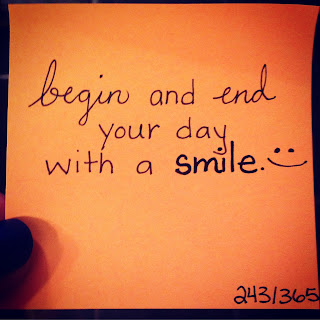 begin and end
your day
with a smile.
243/365